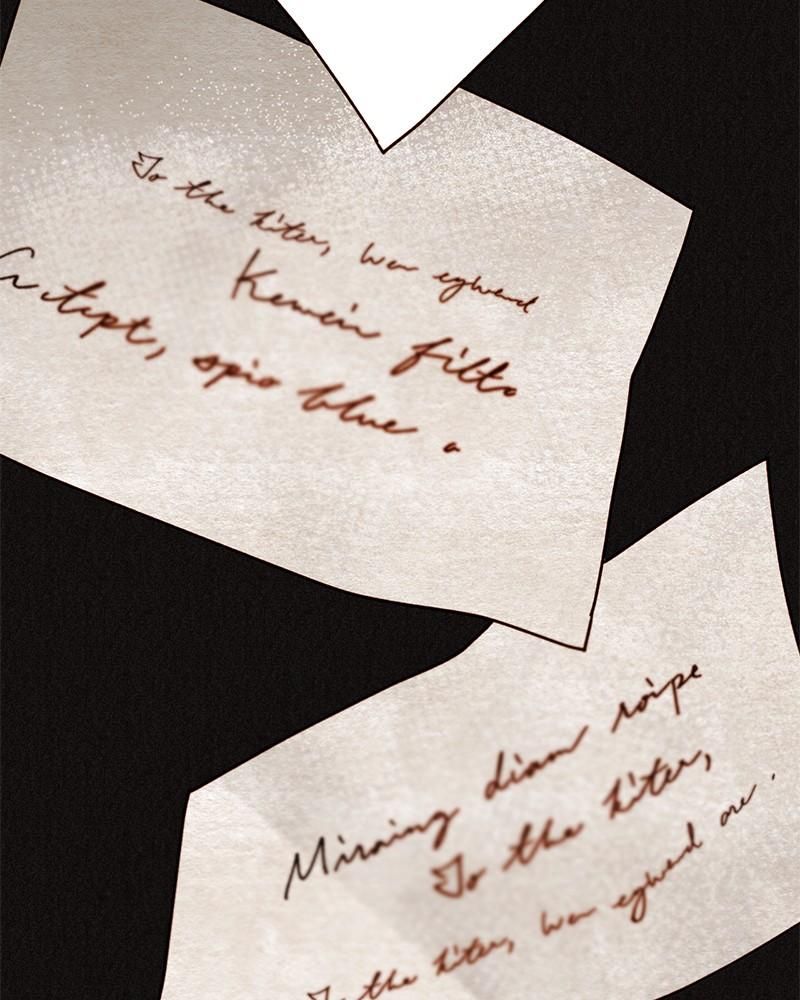 To the hiter, wer eghend
Kemein filto
tept, spio blue a
Miraing diam roipe
To the hiter,
To the hiter, wer eghend are.